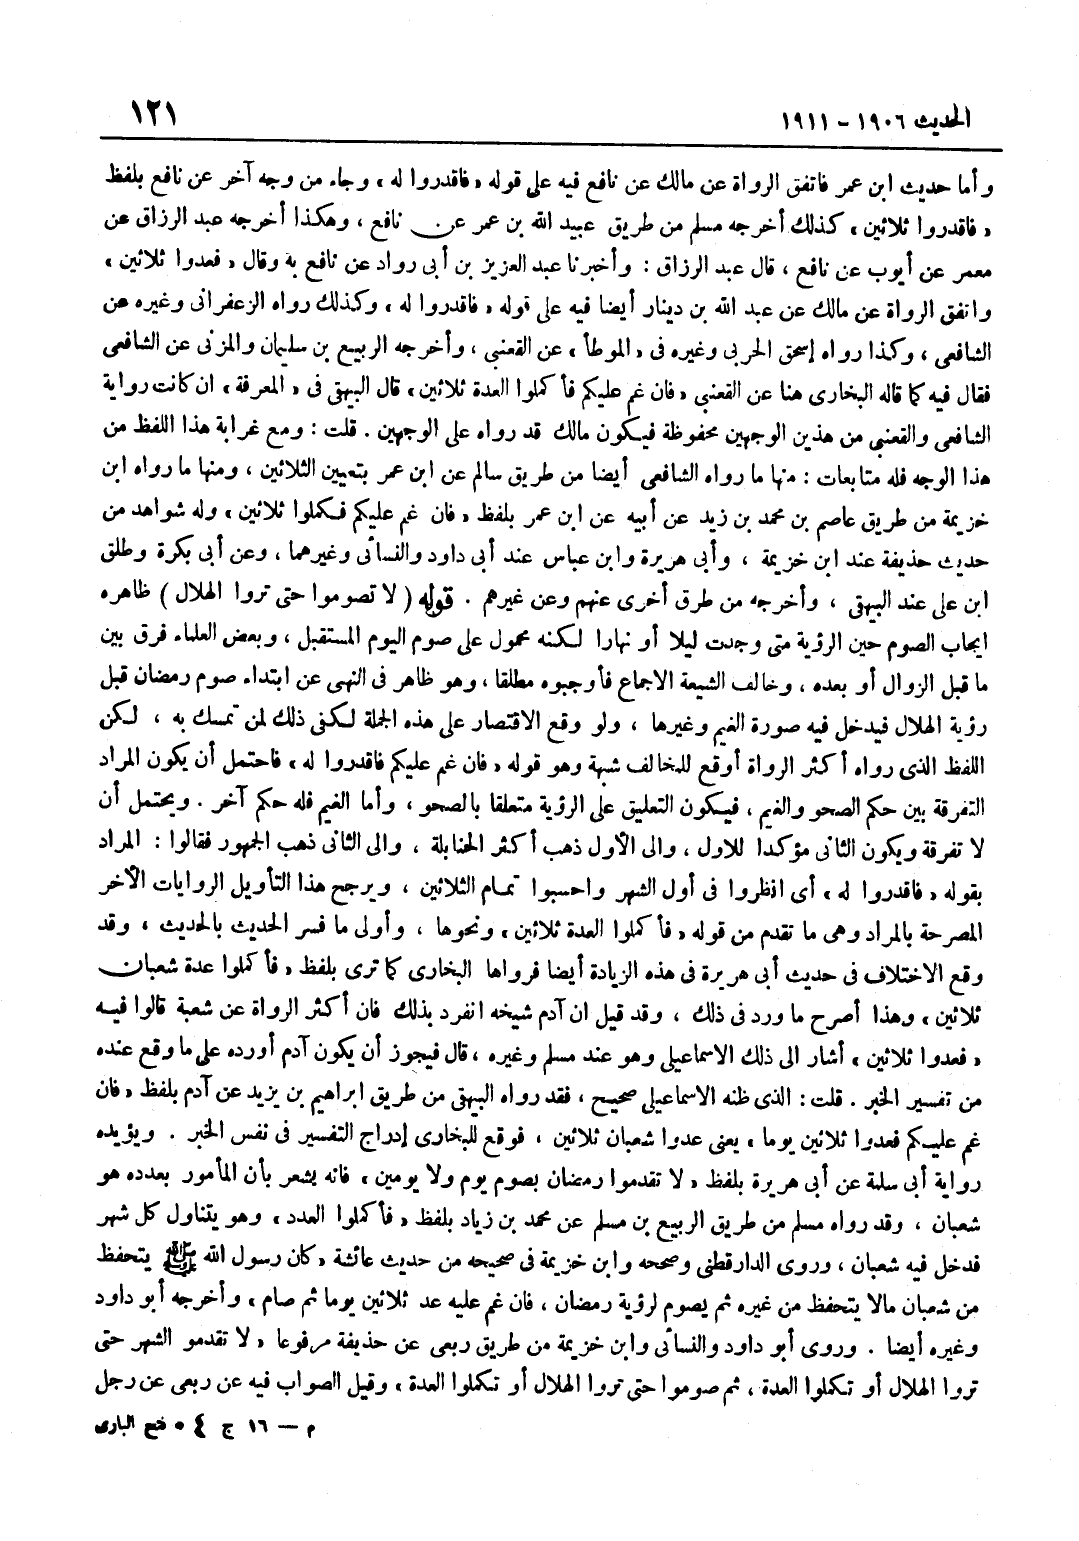 الحديث ١٩٠٦ - ١٩١١
١٢١
وأما حديث ابن عمر فاتفق الرواة عن مالك عن نافع فيه على قوله « فاقدروا له » وجاء من وجه آخر عن نافع بلفظ
« فاقدروا ثلاثين » كذلك أخرجه مسلم من طريق عبيد الله بن عمر عن نافع ، وهكذا أخرجه عبد الرزاق عن
معمر عن أيوب عن نافع ، قال عبد الرزاق : وأخبرنا عبد العزيز بن أبى رواد عن نافع به وقال « فعدوا ثلاثين »
واتفق الرواة عن مالك عن عبد الله بن دينار أيضا فيه على قوله « فاقدروا له » وكذلك رواه الزعفرانى وغيره عن
الشافعى ، وكذا رواه إسحق الحربى وغيره فى « الموطأ » عن القعنبى ، وأخرجه الربيع بن سليمان والمزنى عن الشافعى
فقال فيه كما قاله البخارى هنا عن القعنبى « فان غم عليكم فأكملوا العدة ثلاثين » قال البيهقى فى « المعرفة » ان كانت رواية
الشافعى والقعنبى من هذين الوجهين محفوظة فيكون مالك قد رواه على الوجهين . قلت : ومع غرابة هذا اللفظ من
هذا الوجه فله متابعات : منها ما رواه الشافعى أيضا من طريق سالم عن ابن عمر بتعيين الثلاثين ، ومنها ما رواه ابن
خزيمة من طريق عاصم بن محمد بن زيد عن أبيه عن ابن عمر بلفظ « فان غم عليكم فكملوا ثلاثين » وله شواهد من
حديث حذيفة عند ابن خزيمة ، وأبى هريرة وابن عباس عند أبى داود والنسائى وغيرهما ، وعن أبى بكرة وطلق
ابن على عند البيهقى ، وأخرجه من طرق أخرى عنهم وعن غيرهم . قوله ( لا تصوموا حتى تروا الهلال ) ظاهره
ايجاب الصوم حين الرؤية متى وجدت ليلا أو نهارا لكنه محمول على صوم اليوم المستقبل ، وبعض العلماء فرق بين
ما قبل الزوال أو بعده ، وخالف الشيعة الاجماع فأوجبوه مطلقا ، وهو ظاهر فى النهى عن ابتداء صوم رمضان قبل
رؤية الهلال فيدخل فيه صورة الغيم وغيرها ، ولو وقع الاقتصار على هذه الجملة لكفى ذلك لمن تمسك به ، لكن
اللفظ الذى رواه أكثر الرواة أوقع للمخالف شبهة وهو قوله « فان غم عليكم فاقدروا له » فاحتمل أن يكون المراد
التفرقة بين حكم الصحو والغيم ، فيكون التعليق على الرؤية متعلقا بالصحو ، وأما الغيم فله حكم آخر . ويحتمل أن
لا تفرقة ويكون الثانى مؤكدا للاول ، والى الأول ذهب أكثر الحنابلة ، والى الثانى ذهب الجمهور فقالوا : المراد
بقوله « فاقدروا له » أى انظروا فى أول الشهر واحسبوا تمام الثلاثين ، ويرجح هذا التأويل الروايات الآخر
المصرحة بالمراد وهى ما تقدم من قوله « فأكملوا العدة ثلاثين » ونحوها ، وأولى ما فسر الحديث بالحديث ، وقد
وقع الاختلاف فى حديث أبى هريرة فى هذه الزيادة أيضا فرواها البخارى كما ترى بلفظ « فأكملوا عدة شعبان
ثلاثين » وهذا أصرح ما ورد فى ذلك ، وقد قيل ان آدم شيخه انفرد بذلك فان أكثر الرواة عن شعبة قالوا فيه
« فعدوا ثلاثين » أشار الى ذلك الاسماعيلى وهو عند مسلم وغيره ، قال فيجوز أن يكون آدم أورده على ما وقع عنده
من تفسير الخبر . قلت : الذى ظنه الاسماعيلى صحيح ، فقد رواه البيهقى من طريق ابراهيم بن يزيد عن آدم بلفظ « فان
غم عليكم فعدوا ثلاثين يوما » يعنى عدوا شعبان ثلاثين ، فوقع للبخارى إدراج التفسير فى نفس الخبر . ويؤيده
رواية أبى سلمة عن أبى هريرة بلفظ « لا تقدموا رمضان بصوم يوم ولا يومين » فانه يشعر بأن المأمور بعدده هو
شعبان ، وقد رواه مسلم من طريق الربيع بن مسلم عن محمد بن زياد بلفظ « فأكملوا العدد » وهو يتناول كل شهر
فدخل فيه شعبان ، وروى الدارقطنى وصححه وابن خزيمة فى صحيحه من حديث عائشة « كان رسول الله ﷺ يتحفظ
من شعبان مالا يتحفظ من غيره ثم يصوم لرؤية رمضان ، فان غم عليه عد ثلاثين يوما ثم صام » وأخرجه أبو داود
وغيره أيضا . وروى أبو داود والنسائى وابن خزيمة من طريق ربعى عن حذيفة مرفوعا « لا تقدمو الشهر حتى
تروا الهلال أو تكملوا العدة ، ثم صوموا حتى تروا الهلال أو تكملوا العدة » وقيل الصواب فيه عن ربعى عن رجل
م — ١٦ ج ٤ * فتح البارى